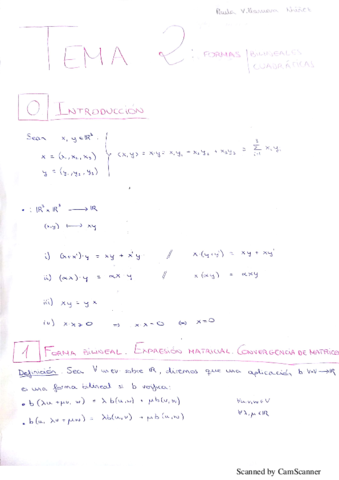 TEMA 2: FORMAS BILINEALES
CUADRÁTICAS
0 INTRODUCCIÓN
Sean x, y ∈ ℝ³
x = (x₁, x₂, x₃)
y = (y₁, y₂, y₃)
⟨x, y⟩ = x·y = x₁y₁ + x₂y₂ + x₃y₃ = Σ xᵢyᵢ
• : ℝ³ × ℝ³ → ℝ
(x,y) ↦ xy
i) (x+x')·y = xy + x'y // x(y+y') = xy + xy'
ii) (αx)·y = αxy // x(αy) = αxy
iii) xy = yx
iv) x x ≥ 0 ⇒ x x = 0 ⇔ x = 0
1 FORMA BILINEAL. EXPRESIÓN MATRICIAL. CONVERGENCIA DE MATRICES
Definición. Sea V un ev sobre ℝ, diremos que una aplicación b: V×V → ℝ
es una forma bilineal si b verifica:
• b(λu + μv, w) = λb(u,w) + μb(v,w) ∀u,v,w ∈ V
• b(u, λv + μw) = λb(u,v) + μb(u,w) ∀λ,μ ∈ ℝ
Scanned by CamScanner